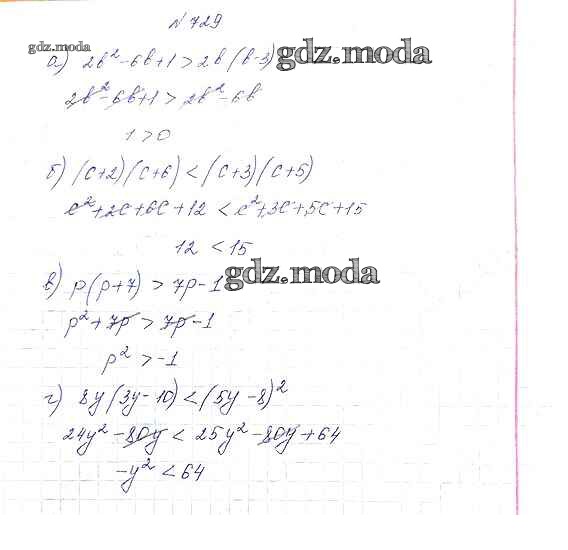 № 729
gdz.moda
а) 2в² - 6в + 1 > 2в (в - 3) gdz.moda
2в² - 6в + 1 > 2в² - 6в
1 > 0
б) (c+2)(c+6) < (c+3)(c+5)
c² + 2c + 6c + 12 < c² + 3c + 5c + 15
12 < 15
в) p(p+7) > 7p - 1 gdz.moda
p² + 7p > 7p - 1
p² > -1
г) 8y(3y - 10) < (5y - 8)²
24y² - 80y < 25y² - 80y + 64
-y² < 64